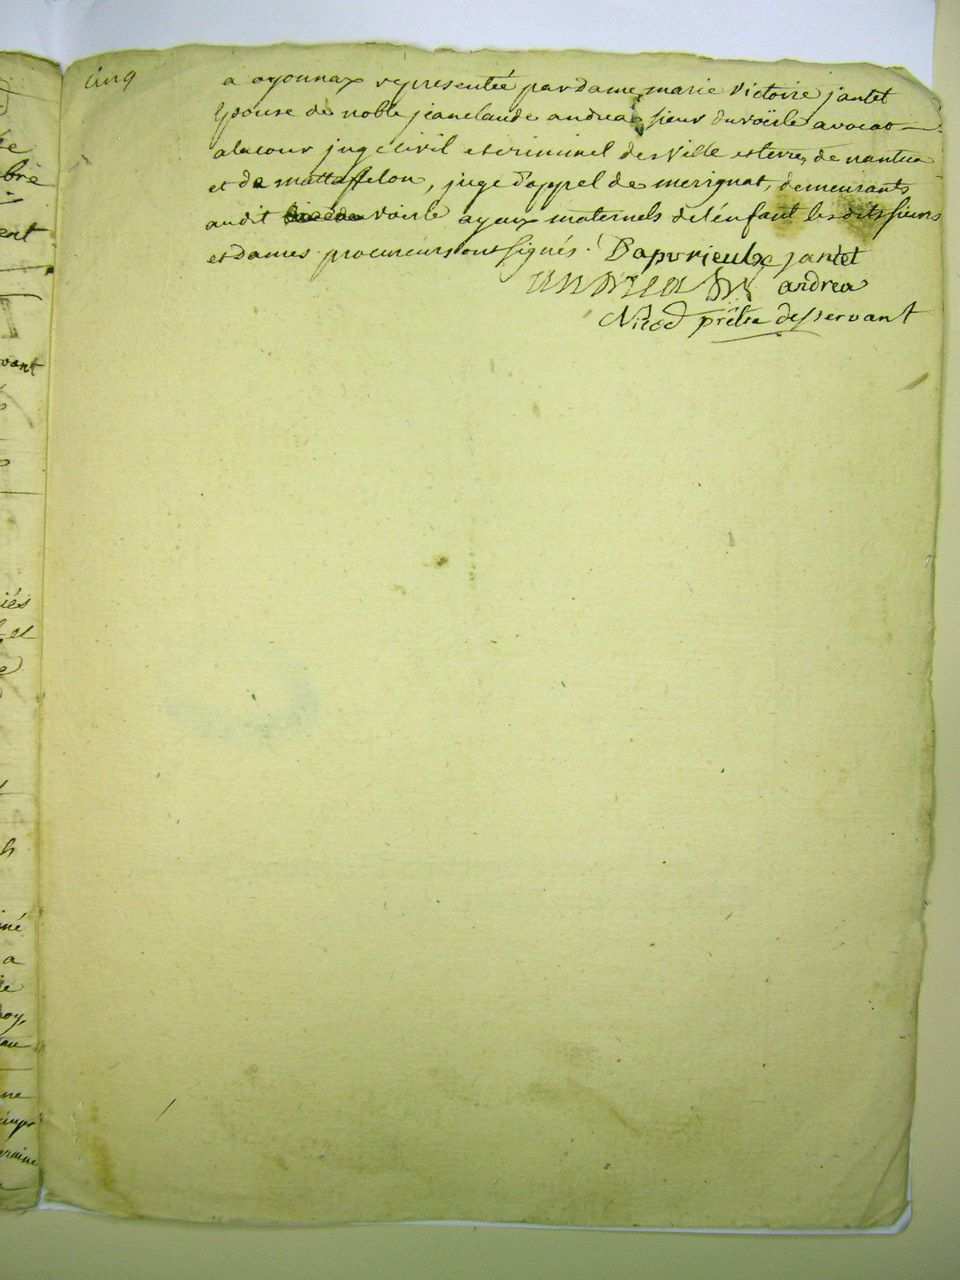 cinq
a oyonnax representée par dame marie victoire jantet
Epouse de noble jean claude andrea sieur du voisle avocat
a la cour juge civil et criminel des ville et terre de nantua
et de mattaffelon, juge d'appel de merignat, demeurants
au dit voisle ayeux maternels de l'enfant les dits sieurs
et dames procureurs ont signés.
jantet
andrea
Nicod prêtre desservant